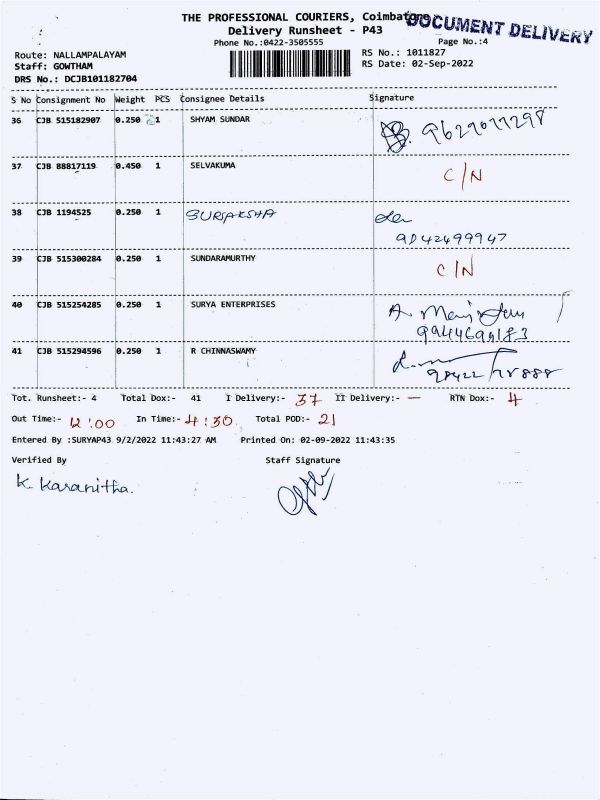 THE PROFESSIONAL COURIERS, Coimbatore
DOCUMENT DELIVERY
Delivery Runsheet - P43
Phone No.:0422-3505555
Page No.:4
Route: NALLAMPALAYAM
RS No.: 1011827
Staff: GOWTHAM
RS Date: 02-Sep-2022
DRS No.: DCJB101182704
S No Consignment No Weight PCS Consignee Details Signature
36 CJB 515182907 0.250 1 SHYAM SUNDAR
37 CJB 88817119 0.450 1 SELVAKUMA C/N
38 CJB 1194525 0.250 1 SURAKSHA
9842499947
39 CJB 515300284 0.250 1 SUNDARAMURTHY C/N
40 CJB 515254285 0.250 1 SURYA ENTERPRISES
41 CJB 515294596 0.250 1 R CHINNASWAMY
Tot. Runsheet:- 4 Total Dox:- 41 I Delivery:- 37 II Delivery:- — RTN Dox:- 4
Out Time:- 12:00 In Time:- 4:30 Total POD:- 21
Entered By :SURYAP43 9/2/2022 11:43:27 AM Printed On: 02-09-2022 11:43:35
Verified By Staff Signature
K. Karanitha.